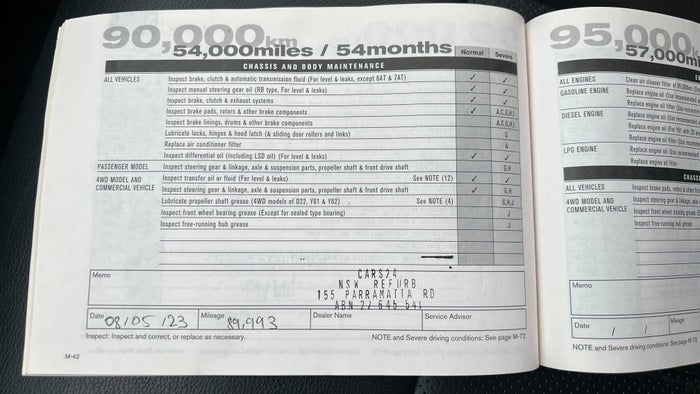 90,000km
54,000miles / 54months
Normal Severe
CHASSIS AND BODY MAINTENANCE
ALL VEHICLES Inspect brake, clutch & automatic transmission fluid (For level & leaks, except 6AT & 7AT) ✓ ✓
Inspect manual steering gear oil (RB type, For level & leaks) ✓ ✓
Inspect brake, clutch & exhaust systems ✓ ✓
Inspect brake pads, rotors & other brake components ✓ A,C,G,H,I
Inspect brake linings, drums & other brake components A,C,G,H,I
Lubricate locks, hinges & hood latch (& sliding door rollers and links) G
Replace air conditioner filter A
Inspect differential oil (including LSD oil) (For level & leaks) ✓ ✓
PASSENGER MODEL Inspect steering gear & linkage, axle & suspension parts, propeller shaft & front drive shaft G,H
4WD MODEL AND Inspect transfer oil or fluid (For level & leaks) See NOTE (12) ✓ ✓
COMMERCIAL VEHICLE Inspect steering gear & linkage, axle & suspension parts, propeller shaft & front drive shaft ✓ G,H
Lubricate propeller shaft grease (4WD models of D22, Y61 & Y62) See NOTE (4) G,H,J
Inspect front wheel bearing grease (Except for sealed type bearing) J
Inspect free-running hub grease J
Memo
CARS24
NSW REFURB
155 PARRAMATTA RD
ABN 27 645 541
Date 08/05/23 Mileage 89,993 Dealer Name Service Advisor
Inspect: Inspect and correct, or replace as necessary. NOTE and Severe driving conditions: See page M-72
M-42
95,000
57,000mi
ALL ENGINES Clean air cleaner filter
GASOLINE ENGINE Replace engine oil
Replace engine oil filter
DIESEL ENGINE Replace engine oil
Replace engine oil
Replace engine oil filter
LPG ENGINE Replace engine oil
Replace engine oil filter
CHASS
ALL VEHICLES Inspect brake pads, rotors & other
4WD MODEL AND Inspect steering gear & linkage,
COMMERCIAL VEHICLE Inspect front wheel bearing grease
Inspect free-running hub grease
Memo
Date / / Mileage
NOTE and Severe driving conditions: See page M-72